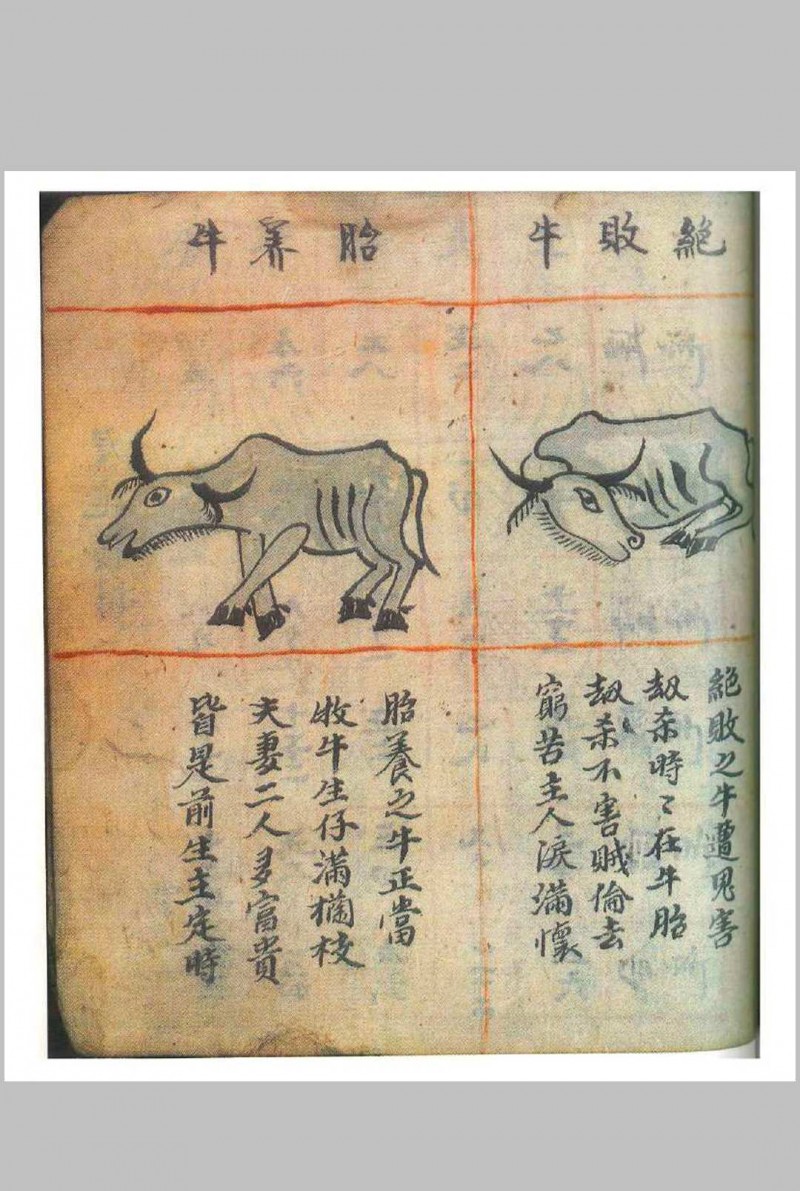 絕敗牛
絕敗之牛遭鬼害
劫杀時〻在牛胎
劫杀不害賊偷去
窮苦主人淚滿懷
胎养牛
胎養之牛正當
牧牛生仔滿欄枝
夫妻二人多富貴
皆是前生主定時